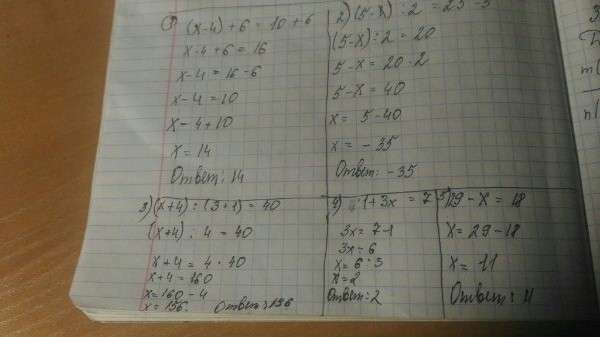 1) (x-4)+6=10+6
x-4+6=16
x-4=16-6
x-4=10
x-4+10
x=14
Ответ: 14
2) (5-x):2=25-5
(5-x):2=20
5-x=20·2
5-x=40
x= 5-40
x= -35
Ответ: -35
3) (x+4):(3+1)=40
(x+4):4=40
x+4=4·40
x+4=160
x=160-4
x=156.
Ответ: 156
4) 1+3x=7
3x=7-1
3x=6
x=6:3
x=2
Ответ: 2
5) 29-x=18
x=29-18
x=11
Ответ: 11